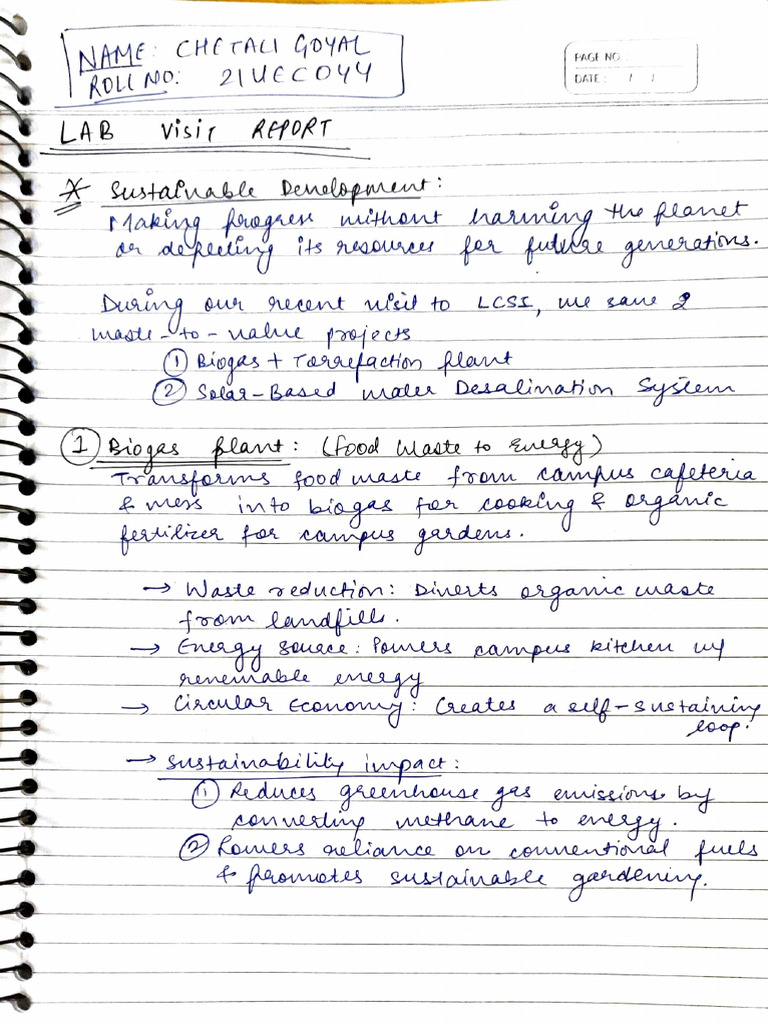 NAME: CHETALI GOYAL
ROLL NO: 21UEC044
PAGE NO.:
DATE: / /
LAB Visit REPORT
* Sustainable Development:
Making progress without harming the planet
or depleting its resources for future generations.
During our recent visit to LCSI, we saw 2
waste-to-value projects
① Biogas + Torrefaction plant
② Solar-Based water Desalination System
① Biogas plant: (food Waste to Energy)
Transforms food waste from campus cafeteria
& mess into biogas for cooking & organic
fertilizer for campus gardens.
→ Waste reduction: Diverts organic waste
from landfills.
→ Energy source: Powers campus kitchen w/
renewable energy
→ Circular Economy: Creates a self-sustaining
loop.
→ Sustainability impact:
① Reduces greenhouse gas emissions by
converting methane to energy.
② Lowers reliance on conventional fuels
& promotes sustainable gardening.